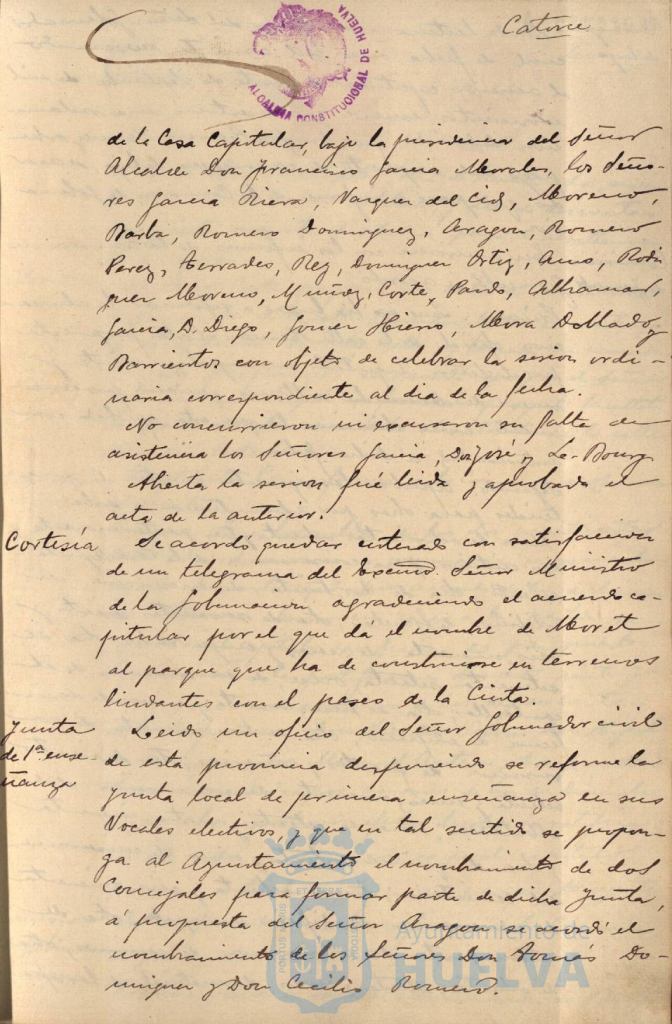 Catorce
ALCALDIA CONSTITUCIONAL DE HUELVA
de la Casa Capitular, bajo la presidencia del Señor
Alcalde Don Francisco Garcia Morales, los Seño-
res Garcia Riera, Vazquez del Cid, Moreno,
Barba, Romero Dominguez, Aragon, Romero
Perez, Terrades, Rey, Dominguez Ortiz, Amo, Rodri
guez Moreno, Muñoz, Corte, Pardo, Alhamar,
Garcia, D. Diego, Gomez Hierro, Mora Doblado y
Barrientos con objeto de celebrar la sesion ordi-
naria correspondiente al dia de la fecha.
No concurrieron ni excusaron su falta de
asistencia los Señores Garcia, Don José, y Le-Bourg
Abierta la sesion fué leida y aprobada el
acta de la anterior.
Cortesía
Se acordó quedar enterado con satisfaccion
de un telegrama del Excmo. Señor Ministro
de la Gobernacion agradeciendo el acuerdo ca-
pitular por el que dá el nombre de Moret
al parque que ha de construirse en terrenos
lindantes con el paseo de la Cinta.
Junta
de 1ª ense-
ñanza
Leido un oficio del Señor Gobernador civil
de esta provincia disponiendo se reforme la
Junta local de primera enseñanza en sus
Vocales electivos, y que en tal sentido se propon-
ga al Ayuntamiento el nombramiento de dos
Concejales para formar parte de dicha Junta,
á propuesta del Señor Aragon se acordó el
nombramiento de los Señores Don Tomás Do-
minguez y Don Cecilio Romero.
Ayuntamiento de
HUELVA